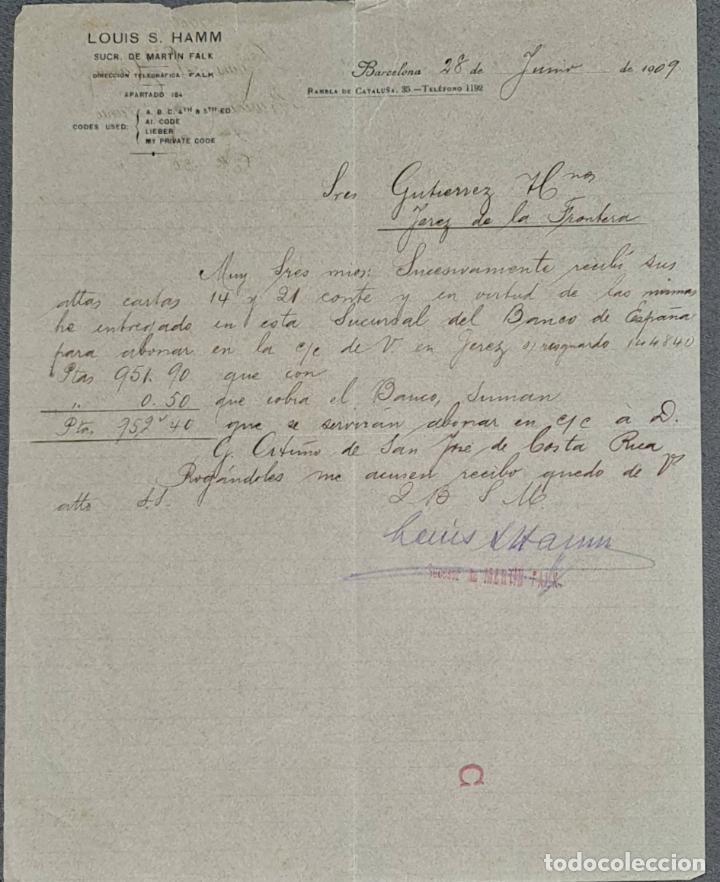 LOUIS S. HAMM
SUCR. DE MARTIN FALK
DIRECCIÓN TELEGRÁFICA: FALK
APARTADO 184
CODES USED: A. B. C. 4TH & 5TH ED.
A1. CODE
LIEBER
MY PRIVATE CODE
Barcelona 28 de Junio de 1909
RAMBLA DE CATALUÑA, 35.—TELÉFONO 1192
Sres Gutierrez Hnos
Jerez de la Frontera
Muy Sres mios: Sucesivamente recibí sus
attas cartas 14 y 21 conte y en virtud de las mismas
he entregado en esta Sucursal del Banco de España
para abonar en la c/c de V. en Jerez s/ resguardo 144840
Ptas 951.90 que con
" 0.50 que cobra el Banco, suman
Ptas 952.40 que se servirán abonar en c/c a D.
G. Ortuño de San José de Costa Rica
Rogándoles me acusen recibo quedo de Vs
atto S.S.
Q B S M
Louis S Hamm
Sucesor de MARTIN FALK
C
todocoleccion